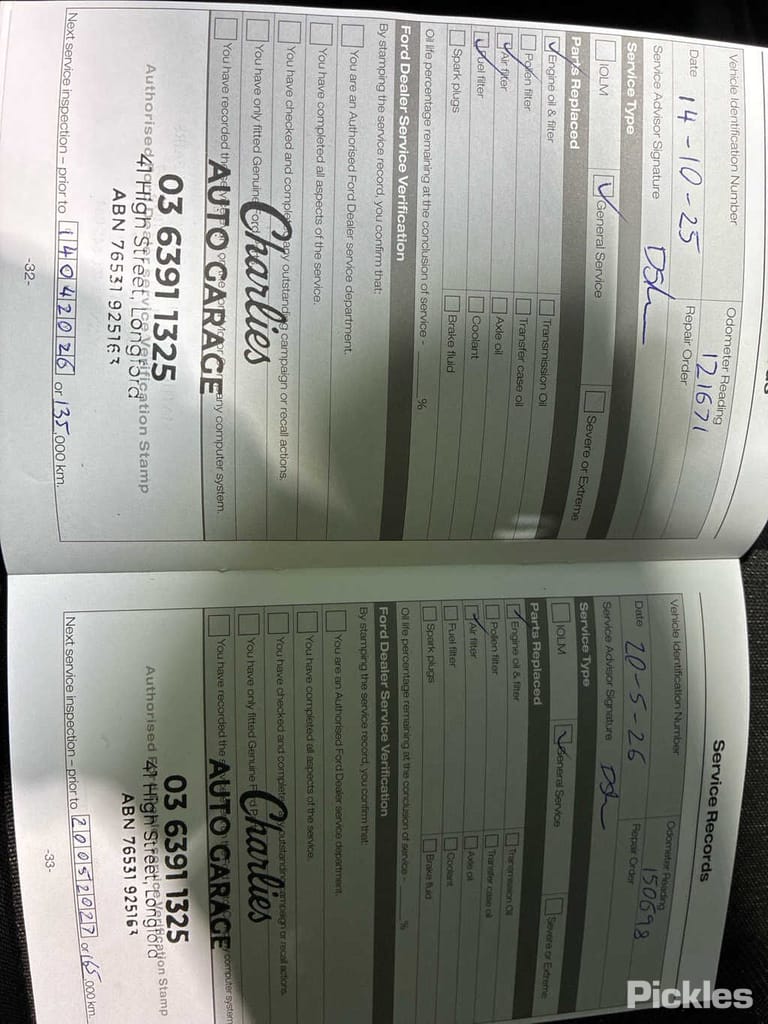 Vehicle Identification Number
Odometer Reading
121671
Date 14-10-25
Repair Order
Service Advisor Signature
Service Type
IOLM
General Service
Severe or Extreme
Parts Replaced
Engine oil & filter
Transmission Oil
Pollen filter
Transfer case oil
Air filter
Axle oil
Fuel filter
Coolant
Spark plugs
Brake fluid
Oil life percentage remaining at the conclusion of service - %
Ford Dealer Service Verification
By stamping the service record, you confirm that:
You are an Authorised Ford Dealer service department.
You have completed all aspects of the service.
You have checked and complete any outstanding campaign or recall actions.
You have only fitted Genuine Ford
You have recorded the any computer system.
Charlies
AUTO GARAGE
03 6391 1325
Authorised Service Verification Stamp
41 High Street, Longford
ABN 76531 925163
Next service inspection – prior to 14042026 or 135,000 km.
-32-
Service Records
Vehicle Identification Number
Odometer Reading
150698
Date 20-5-26
Repair Order
Service Advisor Signature
Service Type
IOLM
General Service
Severe or Extreme
Parts Replaced
Engine oil & filter
Transmission Oil
Pollen filter
Transfer case oil
Air filter
Axle oil
Fuel filter
Coolant
Spark plugs
Brake fluid
Oil life percentage remaining at the conclusion of service - %
Ford Dealer Service Verification
By stamping the service record, you confirm that:
You are an Authorised Ford Dealer service department.
You have completed all aspects of the service.
You have checked and complete outstanding campaign or recall actions.
You have only fitted Genuine Ford
You have recorded the computer system
Charlies
AUTO GARAGE
03 6391 1325
Authorised Verification Stamp
41 High Street, Longford
ABN 76531 925163
Next service inspection – prior to 20052027 or 165,000 km.
-33-
Pickles